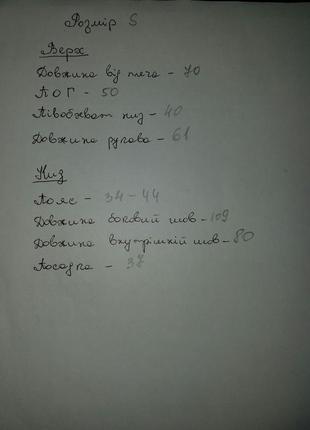 Розмір S
Верх
Довжина від плеча - 70
ПОГ - 50
Півобхват низ - 40
Довжина рукава - 61
Низ
Пояс - 34-44
Довжина боковий шов - 109
Довжина внутрішній шов - 80
Посадка - 37